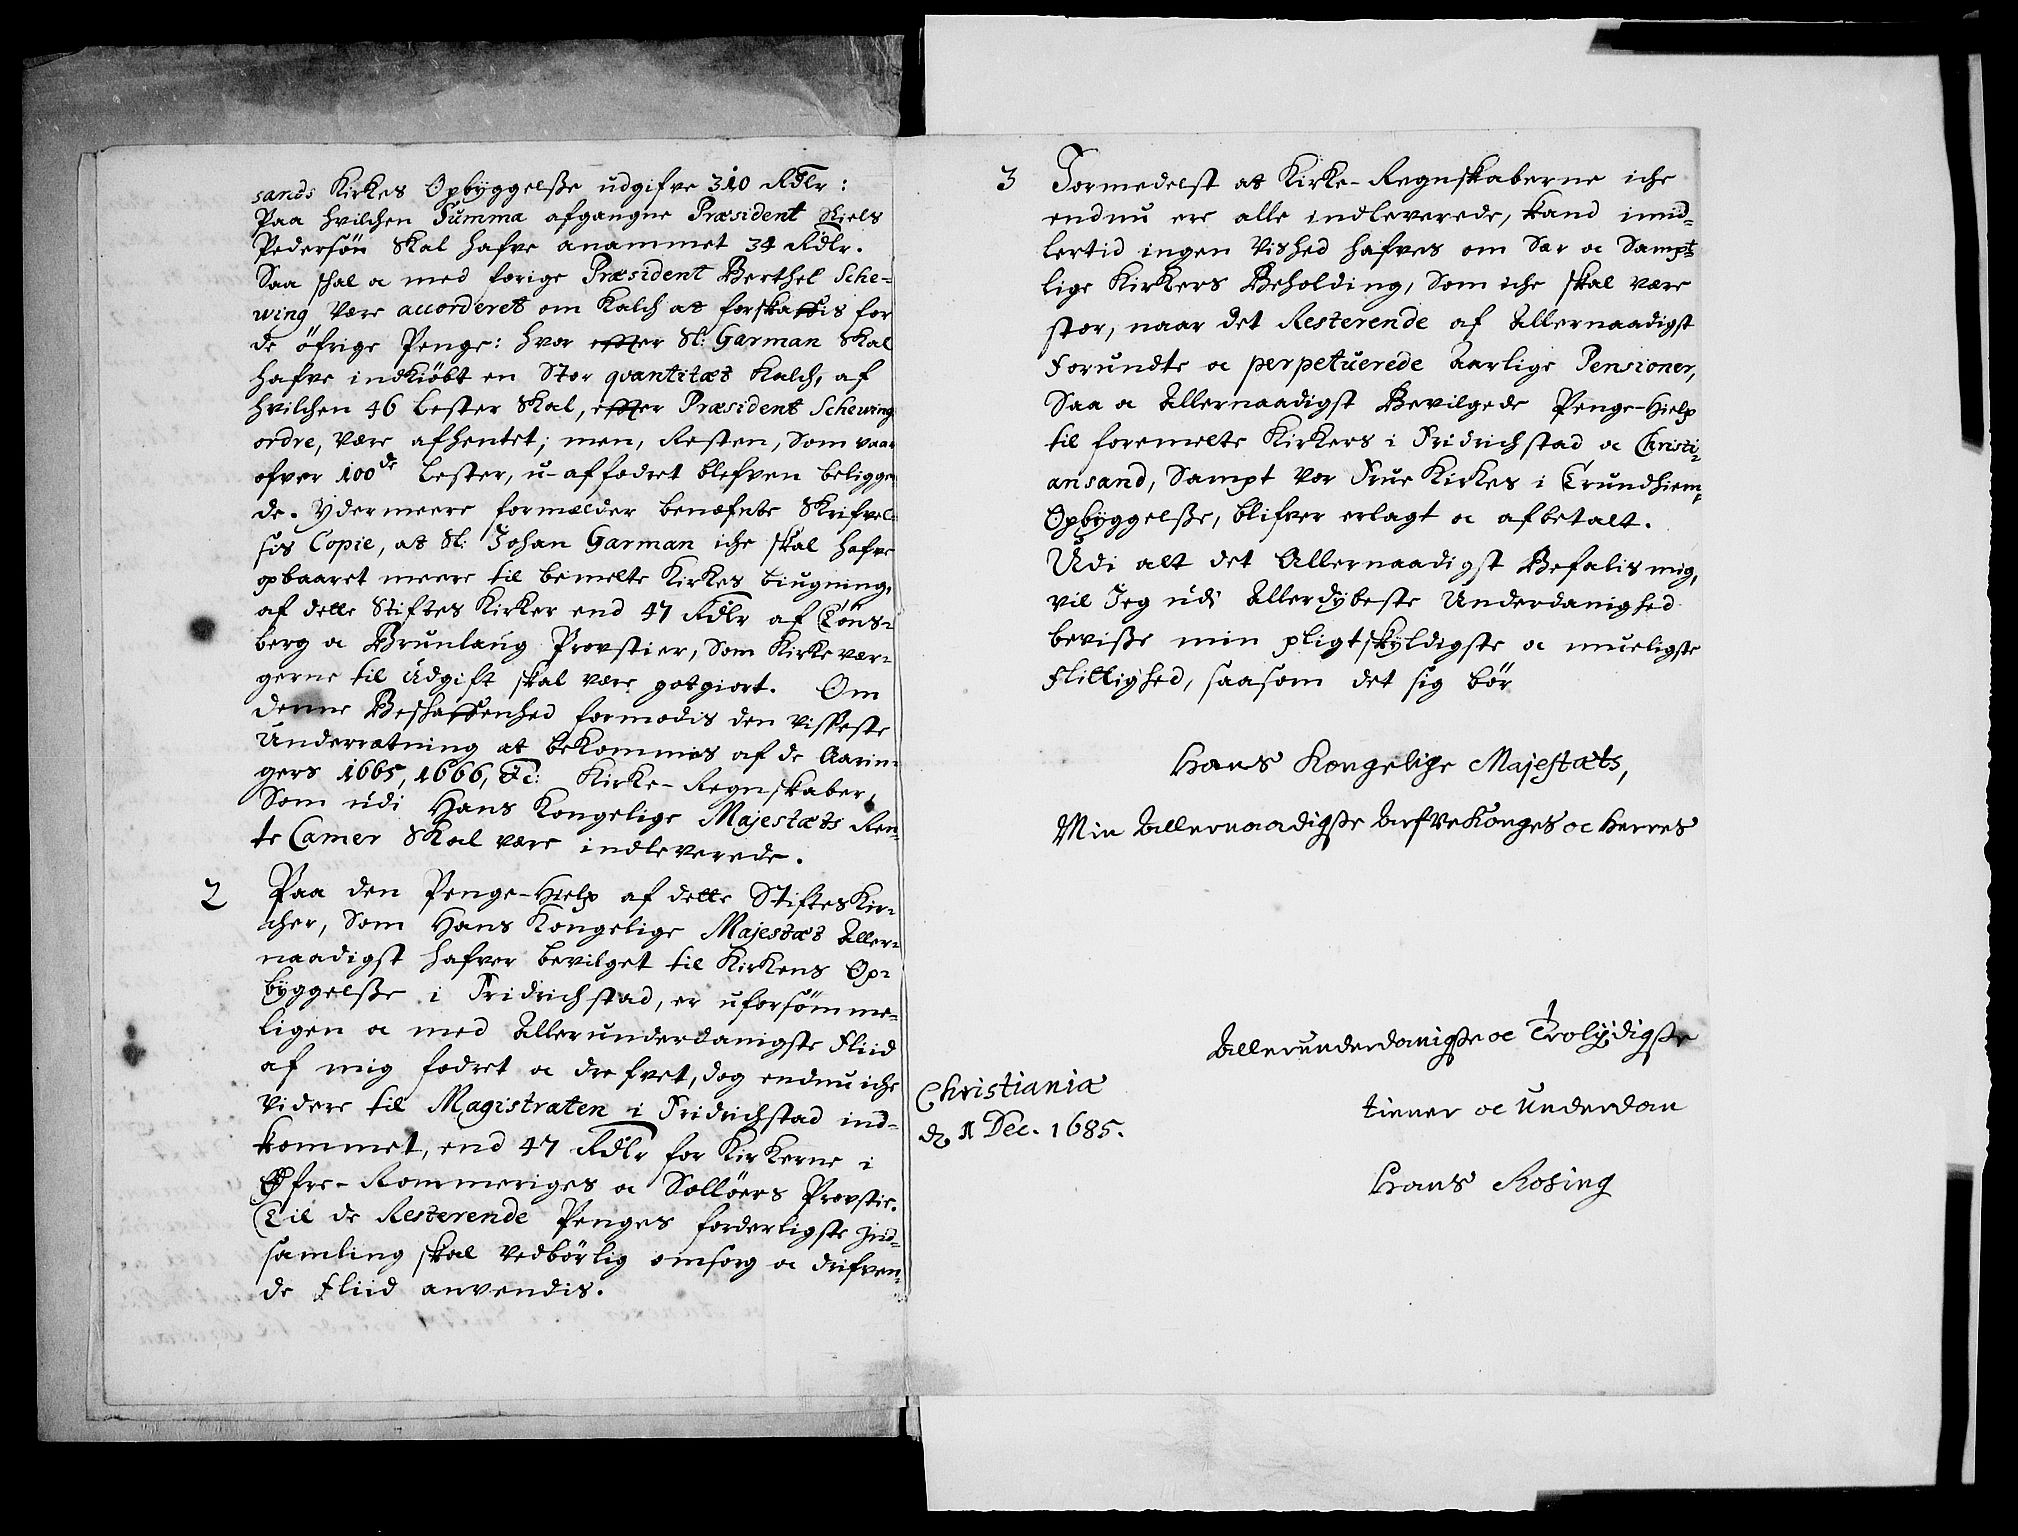 sands Kirkes Opbÿggelsse udgifve 310 Rdlr:
Paa hvilchen Summa afgangne Præsident Niels
Pedersön skal hafve anammet 34 Rdlr.
Saa schal oc med forige Præsident Berthel Sche-
wing være accorderet om Kalch at forskaffis for
de öfrige Penge: hvor effter Sl: Garman skal
hafve indkiöbt en Stor qvantitæt Kalch, af
hvilchen 46 Lester skal, effter Præsident Schewing
ordre, være afhentet; men, Resten, Som vaar
ofver 100de Lester, u-affodret blefven beliggen-
de. Ydermeere formælder benæfnte Skrifvel-
sis Copie, at Sl: Johan Garman iche skal hafve
opbaaret meere til bemelte Kirkes biugning,
af dette Stiftes Kirker end 47 Rdlr af Töns-
berg oc Brunlaug Provstier, Som Kirkevær-
gerne til Udgift skal være gotgiort. Om
denne Beschaffenhed formodis den visseste
Underrætning at bekommes af de Aarin-
gers 1665, 1666, &c: Kirke-Regnskaber,
Som udi Hans Kongelige Majestæts Ren-
te Camer skal være indleverede.
2 Paa den Penge-Hielp af dette Stiftes Kir-
cher, Som Hans Kongelige Majestæt Aller-
naadigst hafver bevilget til Kirkens Op-
bÿggelsse i Fridrichstad, er uforsömme-
ligen oc med Allerunderdanigste Fliid
af mig fodret oc drefvet, dog endnu iche
videre til Magistraten i Fridrichstad ind-
kommet, end 47 Rdlr for Kirkerne i
Öfre-Rommeriges oc Sollöers Provstie.
Til de Resterende Penges forderligste Ind-
samling skal vedbörlig omsorg oc drifven-
de Fliid anvendis.
3 Formedelst at Kirke-Regnskaberne iche
endnu ere alle indleverede, kand imid-
lertid ingen Vished hafves om Sær oc Sampt-
lige Kirkers Beholding, Som iche skal være
stor, naar det Resterende af Allernaadigst
Forundte oc perpetuerede Aarlige Pensioner,
Saa oc Allernaadigst Bevilgede Penge-Hielp
til foremelte Kirkers i Fridrichstad oc Christi-
ansand, Sampt Vor Frue Kirkes i Trundhiem-
Opbÿggelsse, blifver erlagt oc afbetalt.
Udi alt det Allernaadigst Befalis mig,
vil Jeg udi Allerdybeste Underdanighed
bevisse min pligtskyldigste oc mueligste
Flittighed, saasom det sig bör
Hans Kongelige Majestæts,
Min Allernaadigste Arfve Konges oc Herres
Allerunderdanigste oc Trolÿdigste
tiener oc Underdan
Hans Rosing
Christiania
d. 1 Dec. 1685.